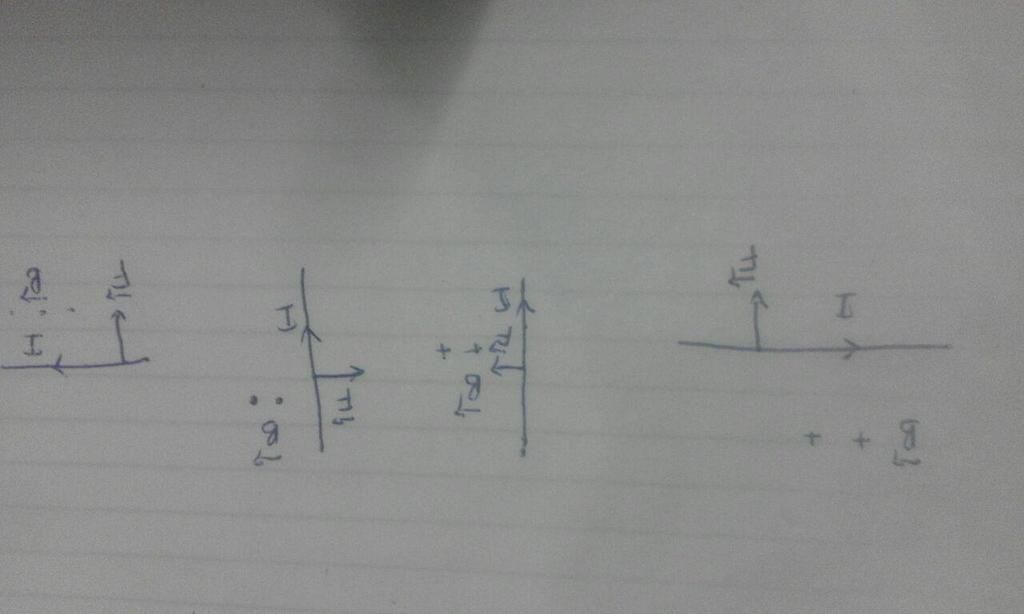 B⃗ + +
I
F⃗
I
F⃗
+ +
B⃗
I
F⃗
B⃗
F⃗
I
B⃗